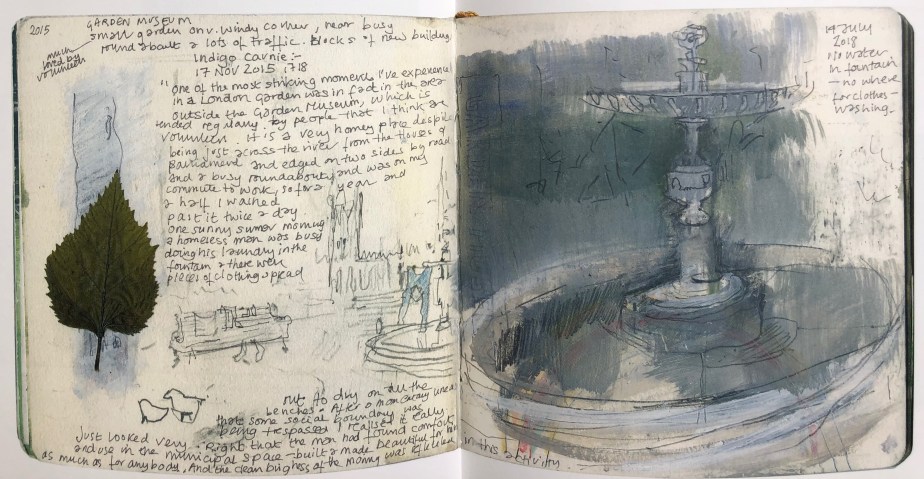 2015
GARDEN MUSEUM
small garden on v. windy corner, near busy
round about & lots of traffic. Blocks of new building
much
loved by
volunteers
Indigo Carnie:-
17 Nov 2015 1718
"one of the most striking moments I've experienced
in a London garden was in fact in the area
outside the Garden Museum, which is
tended regularly by people that I think are
volunteers. It is a very homey place despite
being just across the river from the Houses of
Parliament and edged on two sides by road
and a busy roundabout, and was on my
commute to work, so for a year and
a half I walked
past it twice a day
one sunny summer morning
a homeless man was busy
doing his laundry in the
fountain & there were
pieces of clothing spread
out to dry on all the
benches. After a momentary unease
that some social boundary was
being trespassed I realised it really
Just looked very right that the man had found comfort
and use in the municipal space - built & made beautiful for him
as much as for anybody, And the clean brightness of the morning was reflected
in this activity.
19 July
2018
No water
in fountain
- no where
for clothes -
washing.